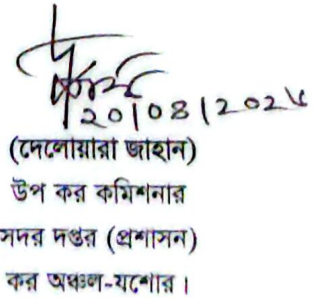 (দেলোয়ারা জাহান)
উপ কর কমিশনার
সদর দপ্তর (প্রশাসন)
কর অঞ্চল-যশোর।